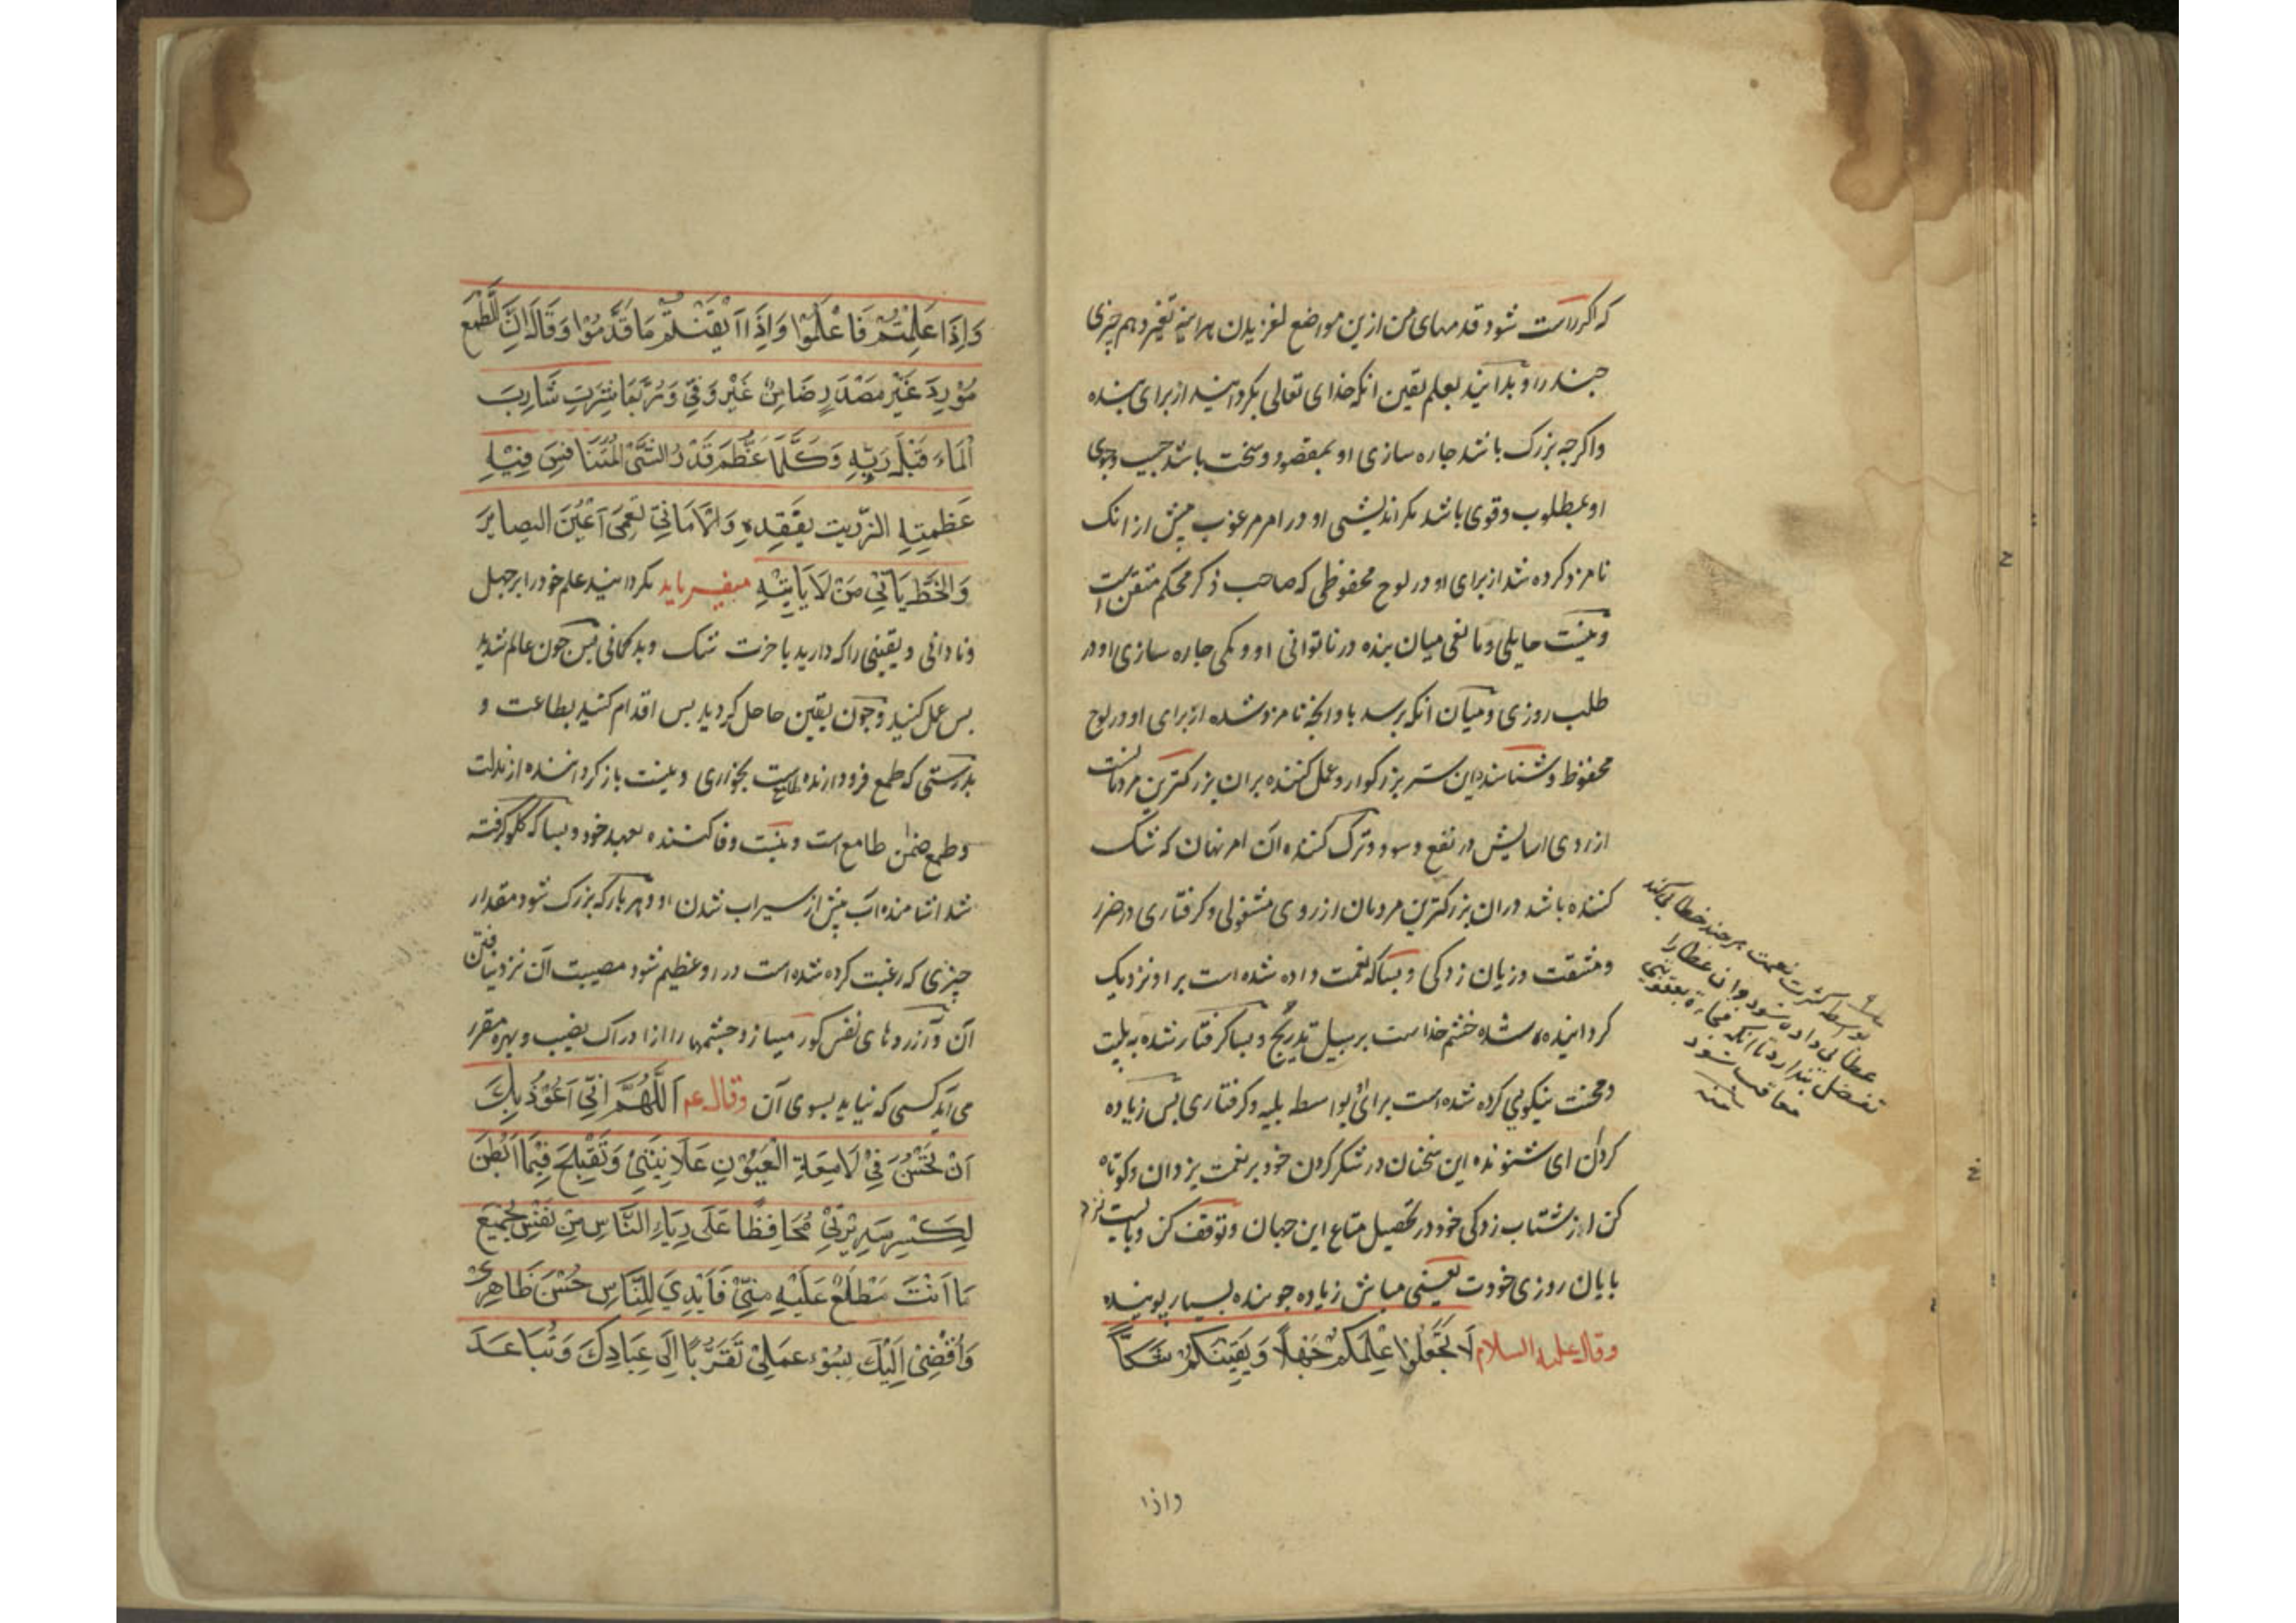 که اکر راست شود قدمهای من ازین مواضع لغزیدن هراینه تغیر دهم چیزی
چند را و بدانید بعلم یقین انکه خدای تعالی نکردانید از برای بنده
واکرچه بزرک باشد چاره سازی او بمقصود و سخت باشد
او بمطلوب و قوی باشد مکر اندیشی او در امر مرغوب بیش از انک
نامزد کرده شد از برای او در لوح محفوظی که صاحب ذکر محکم متقن است
و نیست حایلی و مانعی میان بنده در ناتوانی او و کمی چاره سازی او در
طلب روزی و میان انکه برسد باو انچه نامزد شده از برای او در لوح
محفوظ و شناسنده این سر بزرکوار و عمل کننده بران بزرکترین مردمانست
از روی اسایش در نفع و سود و ترک کننده آن امر نهان که شک
کننده باشد دران بزرکترین مردمان از روی مشغولی و کرفتاری در ضرر
و مشقت و زیان زدکی و بسا که نعمت داده شده است براو نزدیک
کردانیده شده خشم خداست بر سبیل تدریج و بسا کرفتار شده به بلیت
و محنت نیکویی کرده شده است برای او بواسطه بلیه و کرفتاری پس زیاده
کردان ای شنونده این سخنان در شکر کردن خود بر نعمت یزدان و کوتاه
کن از شتاب زدکی خود در تحصیل متاع این جهان و توقف کن و بایست نزد
پایان روزی خودت یعنی مباش زیاده جوینده بسیار پوینده
وقال علیه السلام لَا تَجْعَلُوا عِلْمَكُمْ جَهْلًا وَيَقِينَكُمْ شَكًّا
واذا
بواسطه کثرت نعمت هر چند خطا می کند
عطا بی داده شود و ان عطا را
تفضل پندارد تا انکه
معاقب شود
منه
وَاِذَا عَلِمْتُمْ فَاعْمَلُوا وَاِذَا اَيْقَنْتُمْ فَاَقْدِمُوا وَقَالَ اِنَّ الطَّمَعَ
مُوْرِدٌ غَيْرُ مُصْدِرٍ ضَامِنٌ غَيْرُ وَفِيٍّ وَرُبَّمَا شَرِقَ شَارِبُ
الْمَاءِ قَبْلَ رِيِّهِ وَكُلَّمَا عَظُمَ قَدْرُ الشَّيْءِ الْمُتَنَافَسِ فِيْهِ
عَظُمَتِ الرَّزِيَّةُ لِفَقْدِهِ وَالْاَمَانِيُّ تُعْمِي اَعْيُنَ الْبَصَائِرِ
وَالْحَظُّ يَاْتِي مَنْ لَا يَاْتِيْهِ میفرماید نکردانید علم خود را بر جهل
و نادانی و یقینی را که دارید باخرت شک و بدکمانی پس چون عالم شدید
پس عمل کنید و چون یقین حاصل کردید پس اقدام کنید بطاعت و
بدرستی که طمع فرود ارنده است بخواری و نیست باز کرداننده از مذلت
و طمع ضمان طامع است و نیست وفا کننده بعهد خود و بسا که کلو کرفته
شد اشامنده آب پیش از سیراب شدن او و هر بار که بزرک شود مقدار
چیزی که رغبت کرده شده است در او عظیم شود مصیبت آن نزد نیافتن
آن و آرزوهای نفس کور میسازد چشمها را از ادراک نصیب و بهره مقرر
می آید کسی که نیاید بسوی آن وقال عم اَللّٰهُمَّ اِنِّي اَعُوْذُ بِكَ
اَنْ تَحْسُنَ فِي لَامِعَةِ الْعُيُوْنِ عَلَانِيَتِي وَتَقْبُحَ فِيْمَا اُبْطِنُ
لَكَ سَرِيْرَتِي مُحَافِظًا عَلَى رِيَاءِ النَّاسِ مِنْ نَفْسِي بِجَمِيْعِ
مَا اَنْتَ مُطَّلِعٌ عَلَيْهِ مِنِّي فَاُبْدِيَ لِلنَّاسِ حُسْنَ ظَاهِرِي
وَاُفْضِيَ اِلَيْكَ بِسُوْءِ عَمَلِي تَقَرُّبًا اِلَى عِبَادِكَ وَتَبَاعُدًا